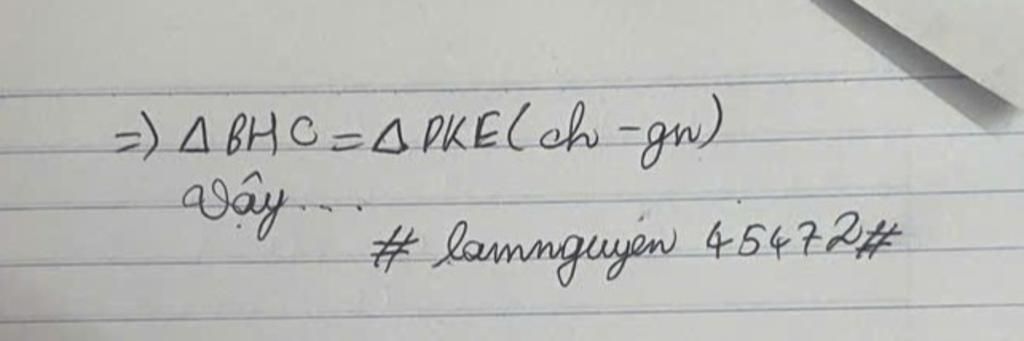 =) Δ BHC = Δ DKE (ch - gn)
Vậy...
# lamnguyên 45472#